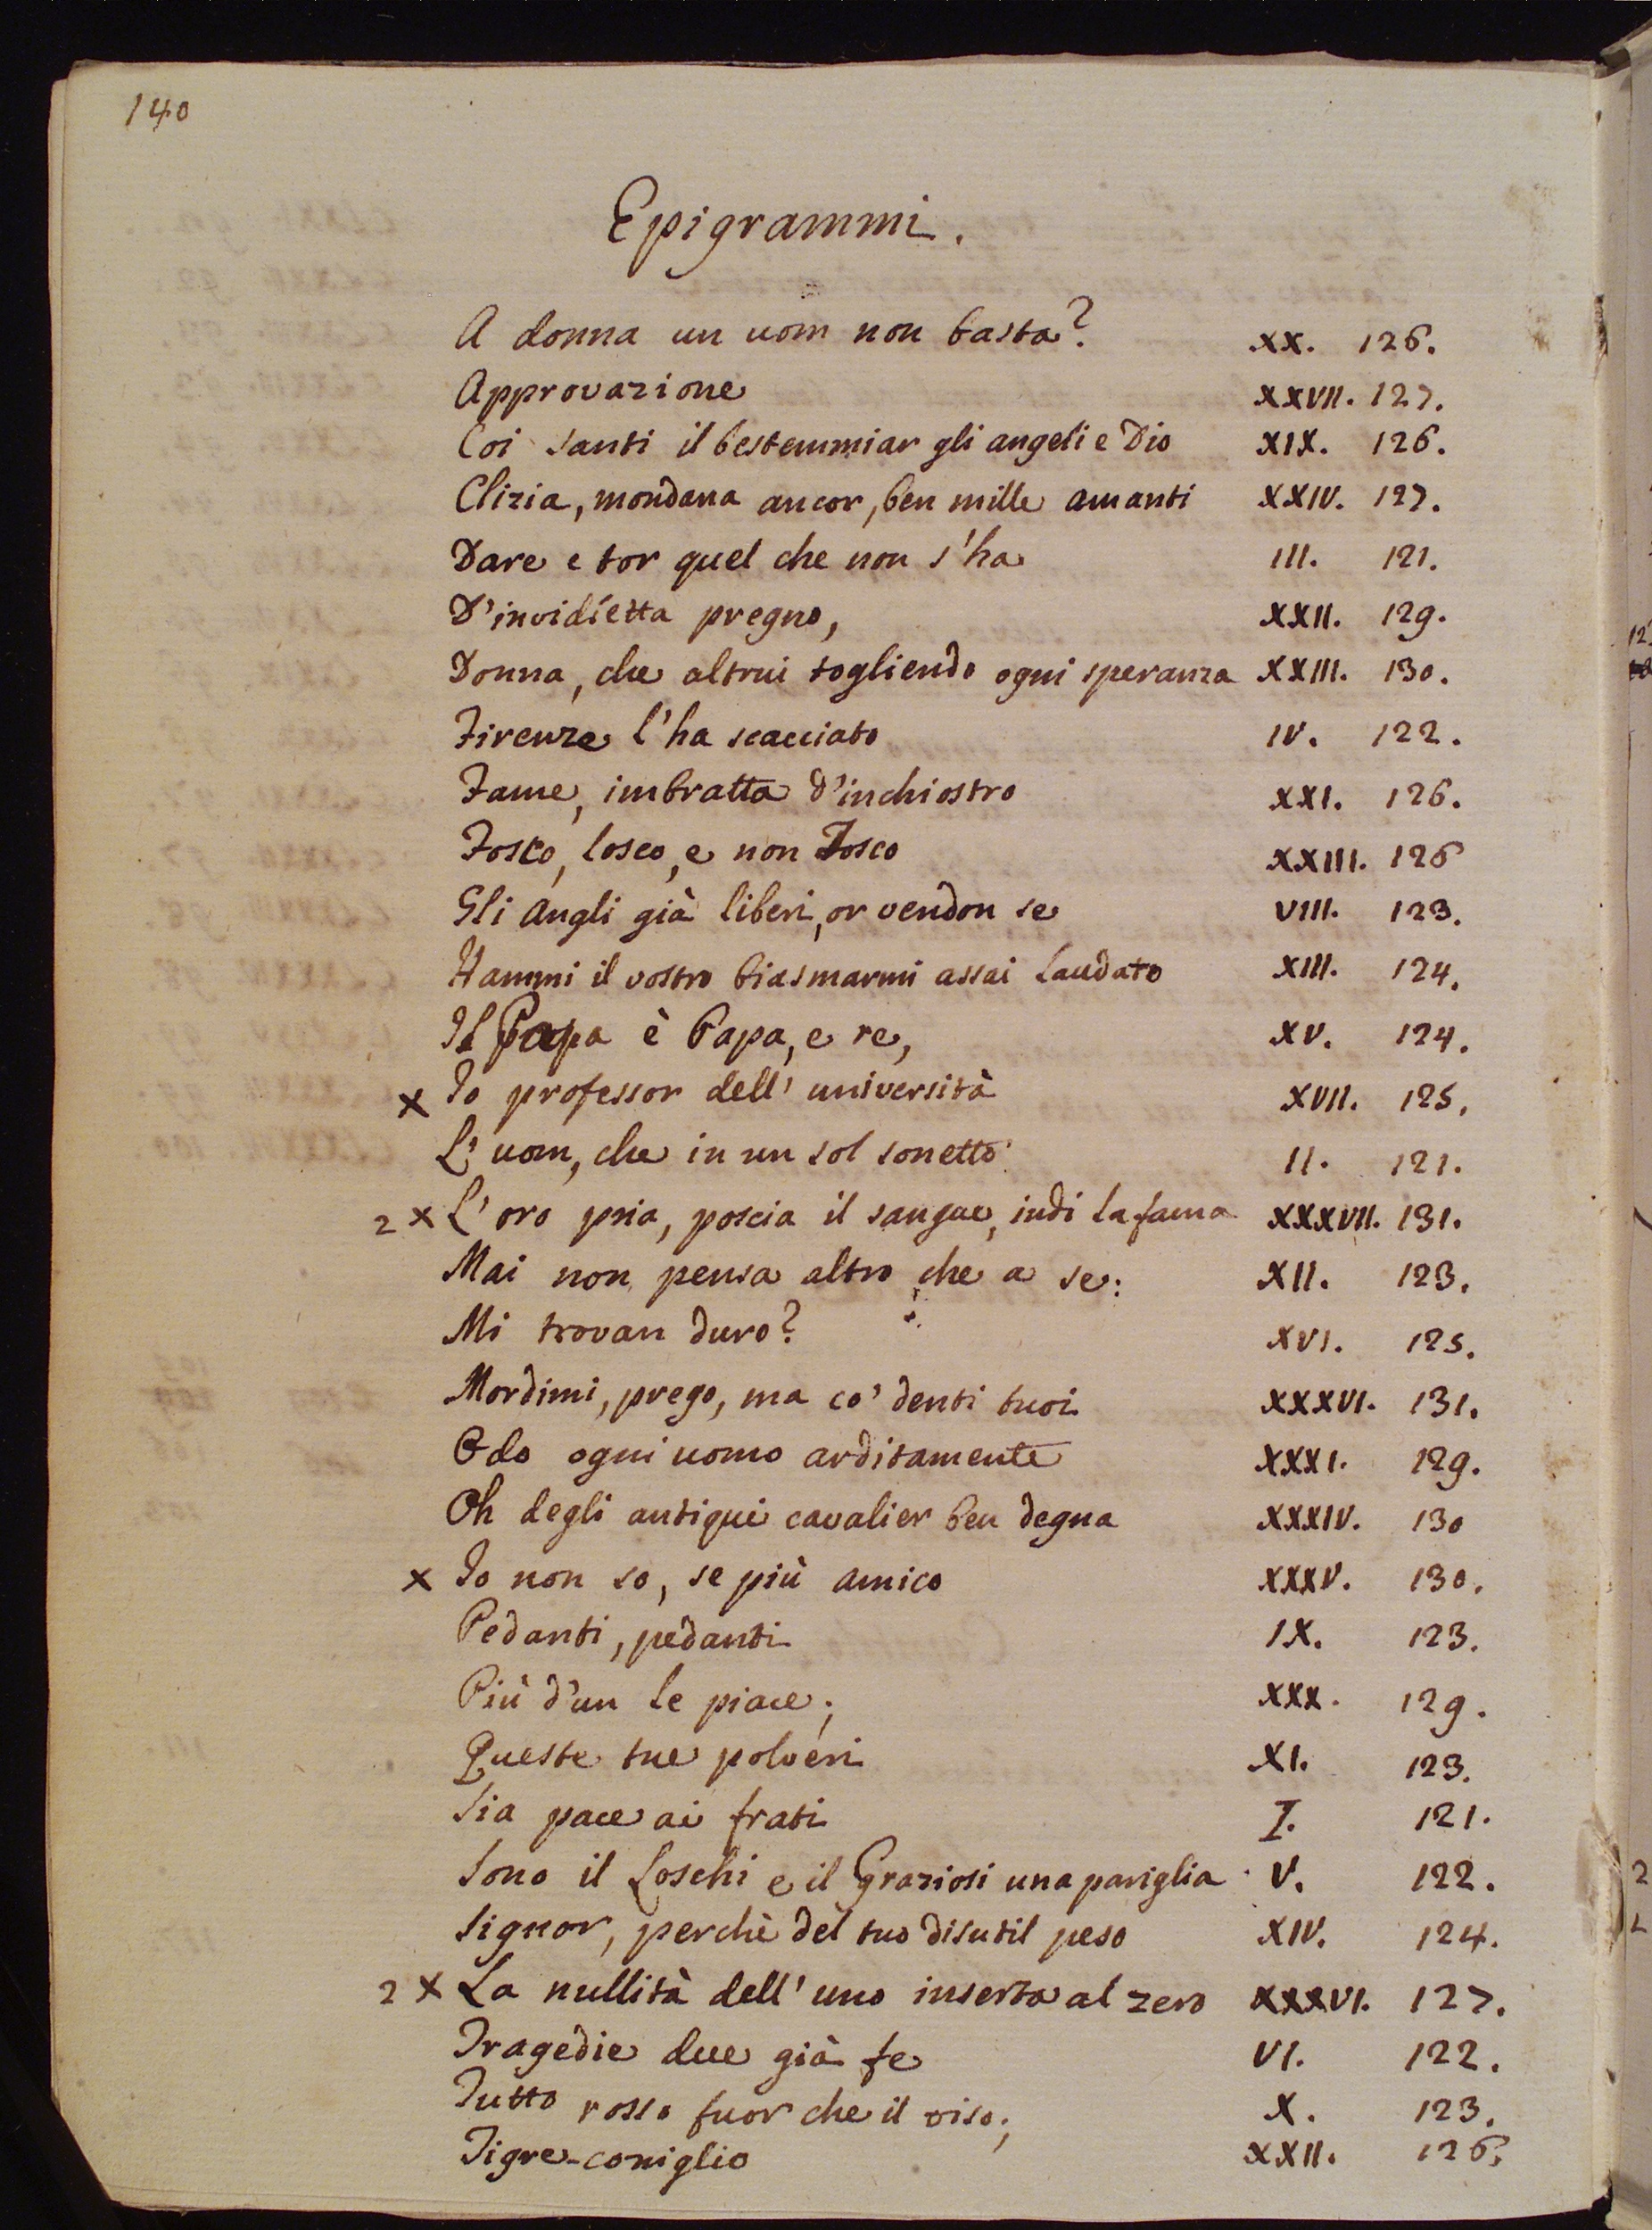 140
Epigrammi.
A donna un uom non basta? XX. 126.
Approvazione XXVII. 127.
Coi Santi il bestemmiar gli angeli e Dio XIX. 126.
Clizia, mondana ancor, ben mille amanti XXIV. 127.
Dare e tor quel che non s'ha III. 121.
D'invidietta pregno, XXII. 129.
Donna, che altrui togliendo ogni speranza XXIII. 130.
Firenze l'ha scacciato IV. 122.
Fame, imbratta d'inchiostro XXI. 126.
Fosco, losco, e non Tosco XXIII. 126
Gli Angli già liberi, or vendon se VIII. 123.
Hammi il vostro biasmarmi assai laudato XIII. 124.
Il Papa è Papa, e re, XV. 124.
x Io professor dell' università XVII. 125.
L' uom, che in un sol sonetto II. 121.
2 x L' oro pria, poscia il sangue, indi la fama XXXVII. 131.
Mai non pensa altro che a se: XII. 123.
Mi trovan duro? XVI. 125.
Mordimi, prego, ma co' denti tuoi XXXVI. 131.
Odo ogni uomo arditamente XXXI. 129.
Oh degli antiqui cavalier ben degna XXXIV. 130
x Io non so, se più amico XXXV. 130.
Pedanti, pedanti IX. 123.
Più d'un le piace; XXX. 129.
Queste tue polveri XI. 123.
Sia pace ai frati I. 121.
Sono il Loschi e il Graziosi una pariglia V. 122.
Signor, perchè del tuo disutil peso XIV. 124.
2 x La nullità dell' uno inserta al zero XXXVI. 127.
Tragedie due già fe VI. 122.
Tutto rosso fuor che il viso; X. 123.
Tigre-coniglio XXII. 126.